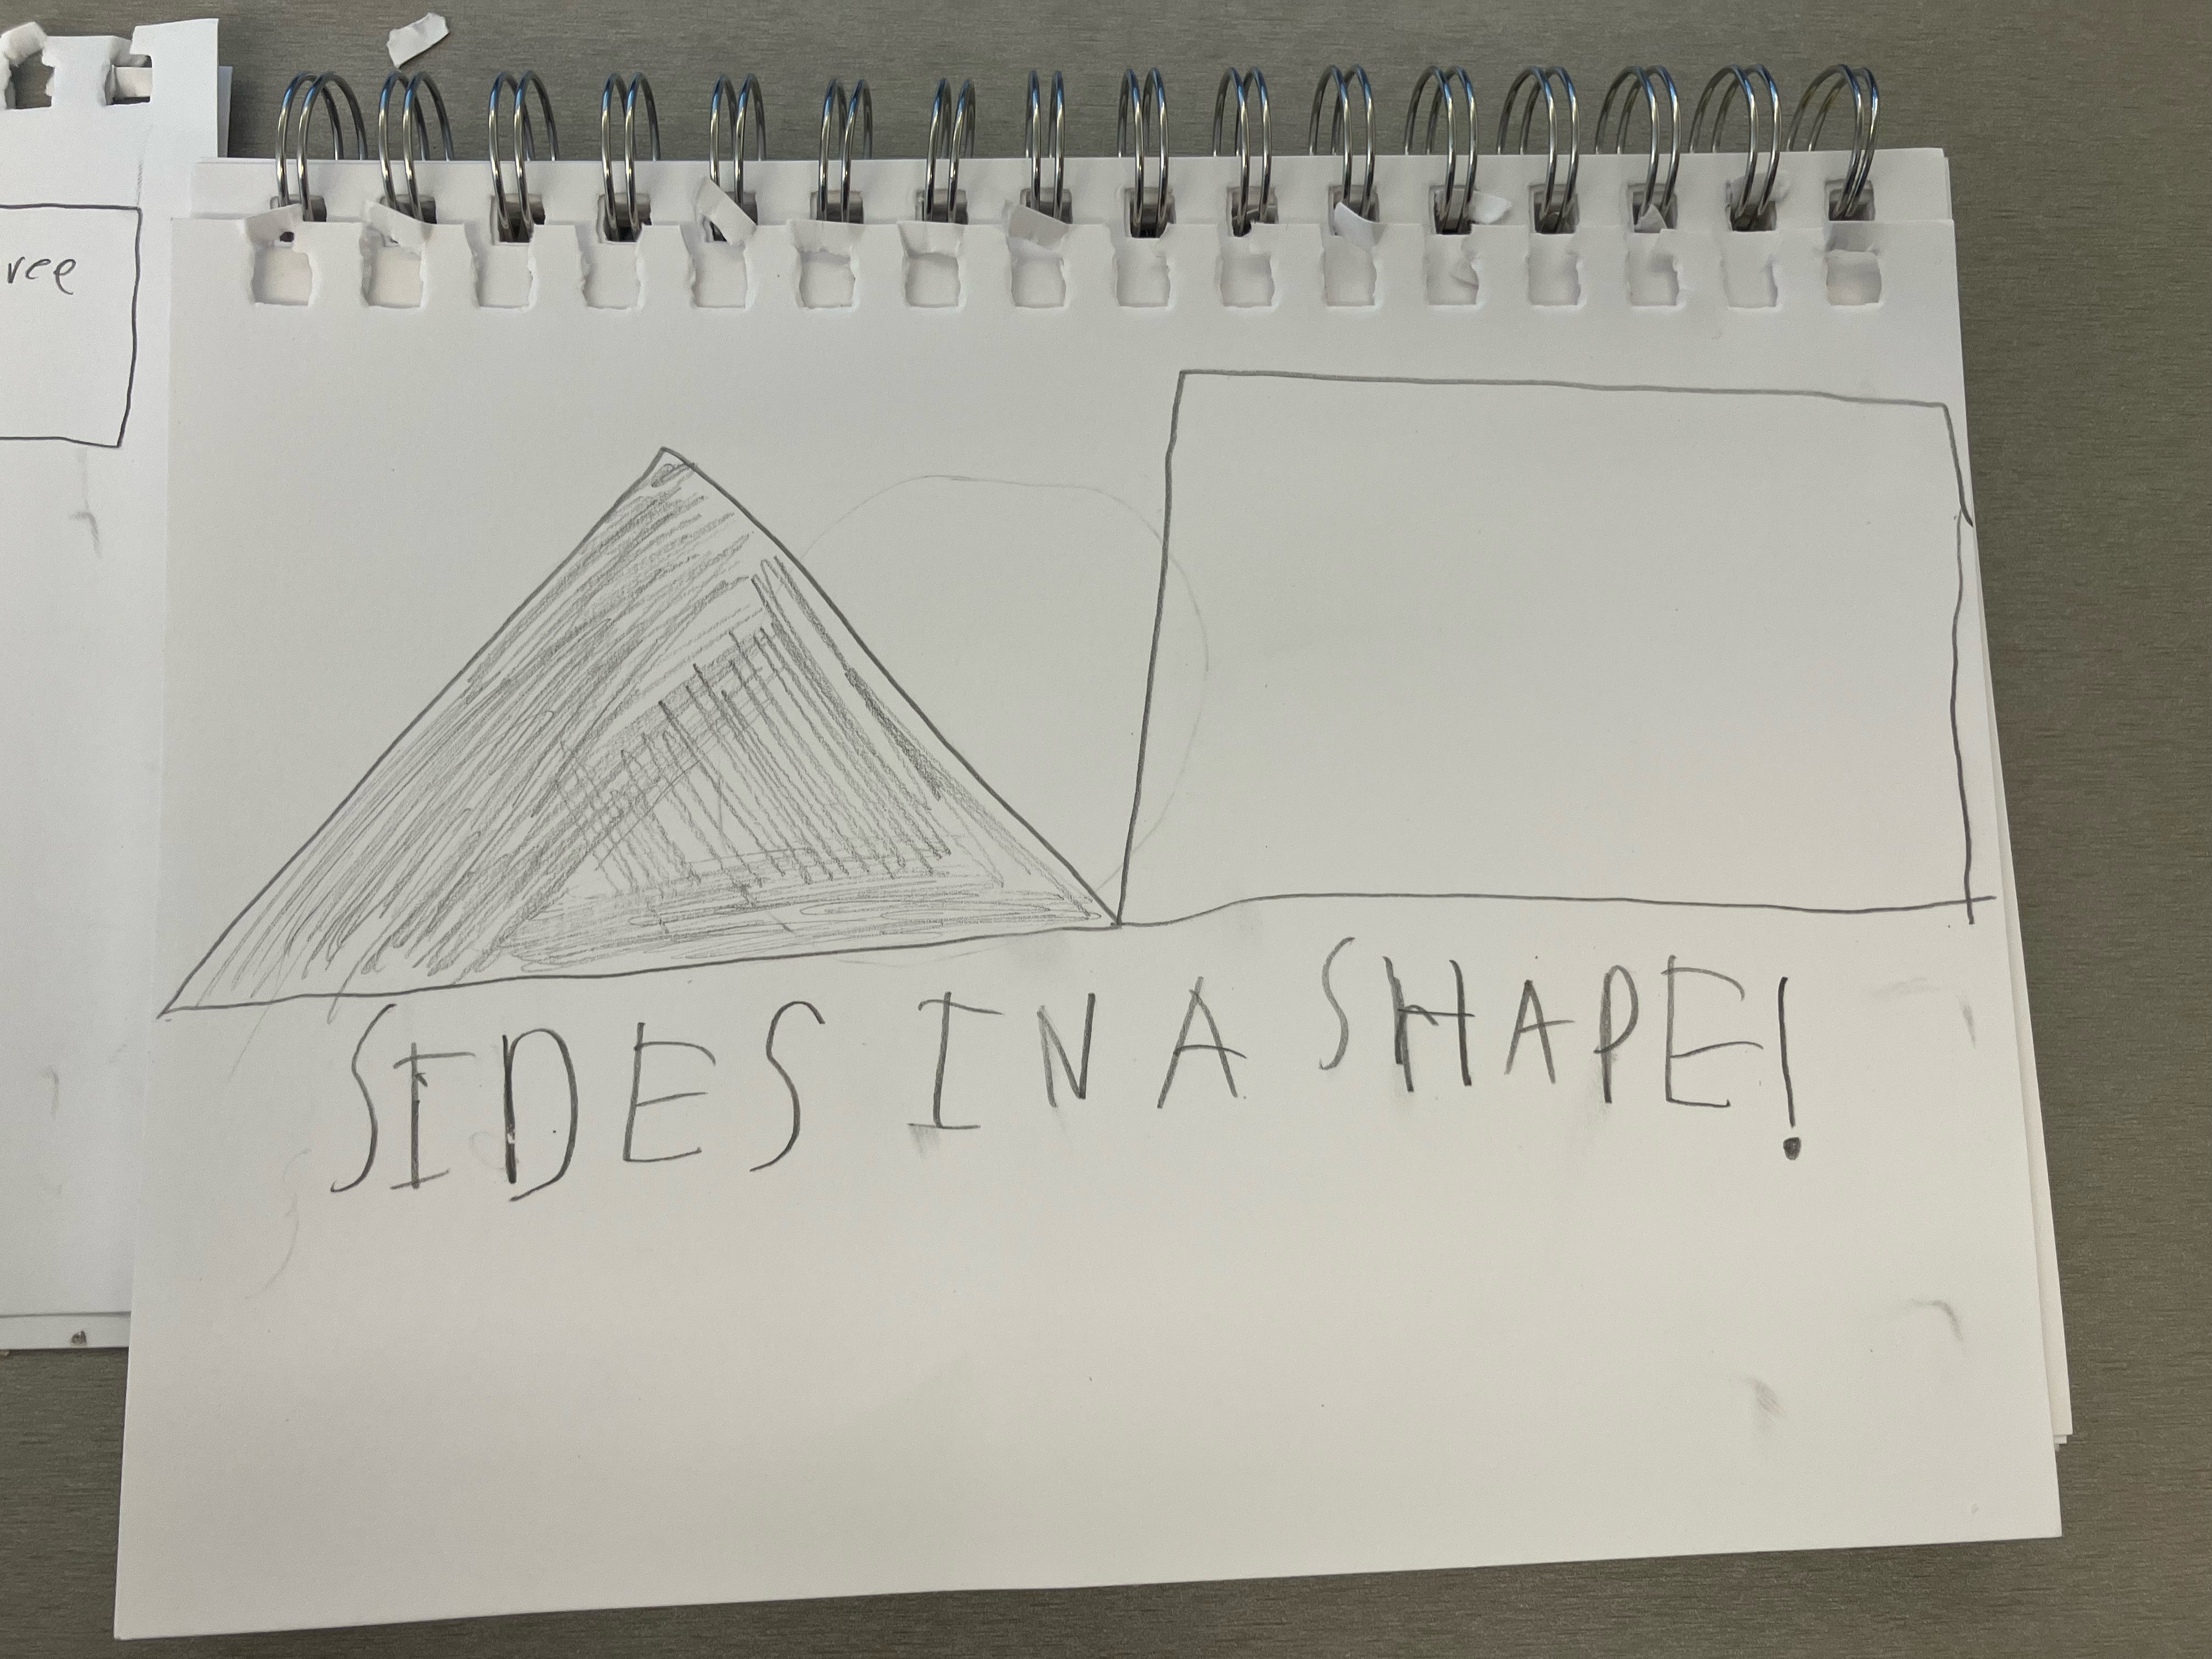 ree
SIDES IN A SHAPE!